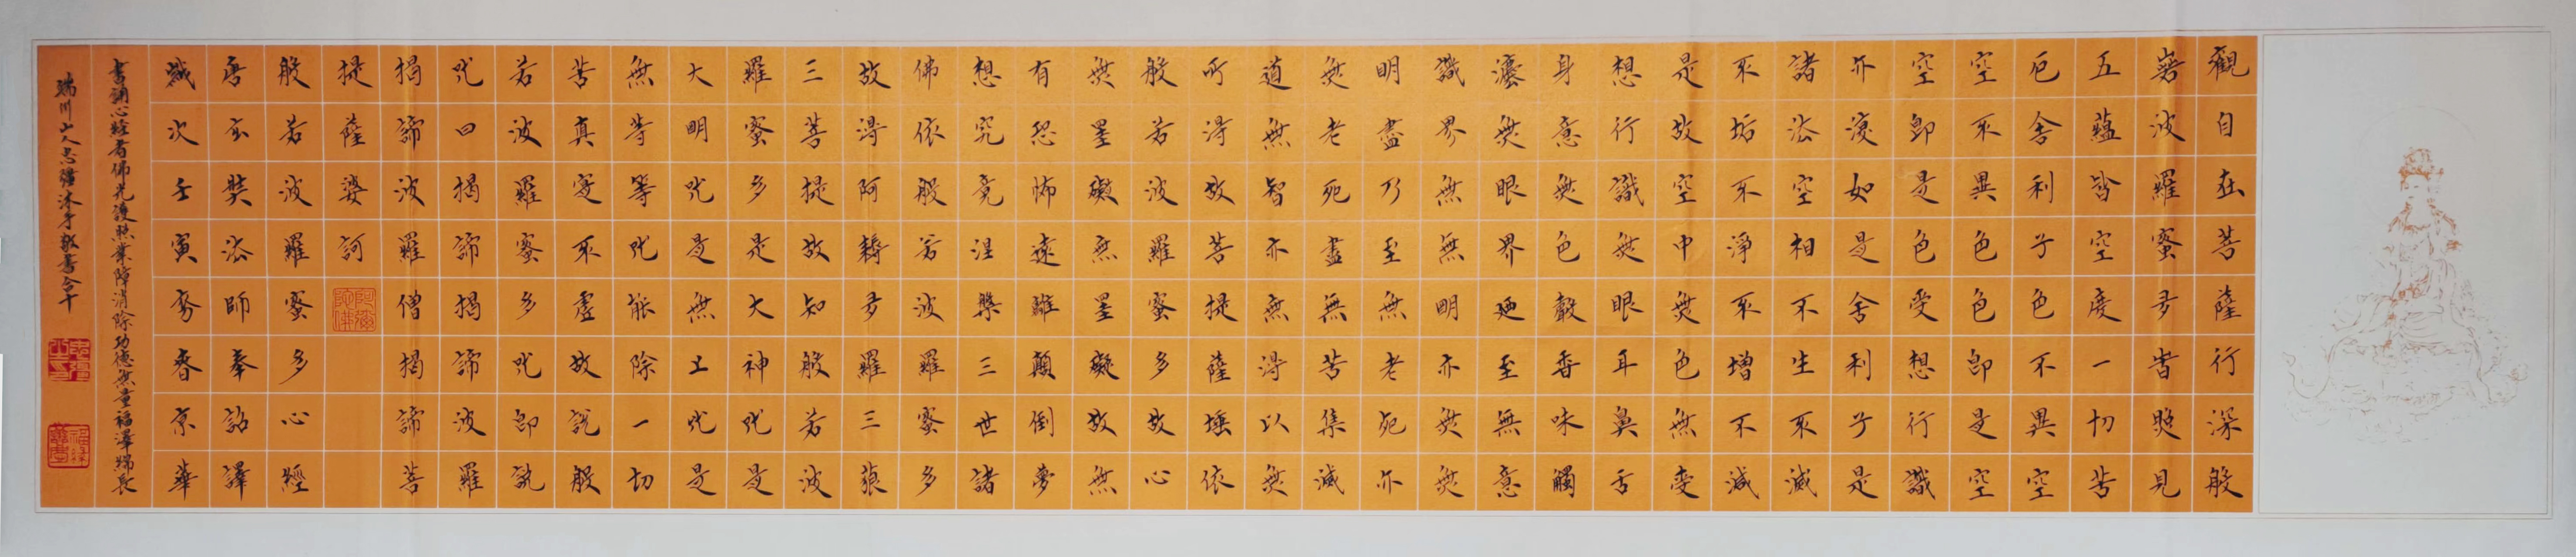 觀自在菩薩行深般
若波羅蜜多時照見
五蘊皆空度一切苦
厄舍利子色不異空
空不異色色即是空
空即是色受想行識
亦復如是舍利子是
諸法空相不生不滅
不垢不淨不增不減
是故空中無色無受
想行識無眼耳鼻舌
身意無色聲香味觸
法無眼界乃至無意
識界無無明亦無無
明盡乃至無老死亦
無老死盡無苦集滅
道無智亦無得以無
所得故菩提薩埵依
般若波羅蜜多故心
無罣礙無罣礙故無
有恐怖遠離顛倒夢
想究竟涅槃三世諸
佛依般若波羅蜜多
故得阿耨多羅三藐
三菩提故知般若波
羅蜜多是大神咒是
大明咒是無上咒是
無等等咒能除一切
苦真實不虛故說般
若波羅蜜多咒即說
咒曰揭諦揭諦波羅
揭諦波羅僧揭諦菩
提薩婆訶
阿彌陀佛
般若波羅蜜多心經
唐玄奘法師奉詔譯
歲次壬寅季春京華
書誦心經者佛光護照業障消除功德無量福澤綿長
瑞川山人忠強沐手敬書合十